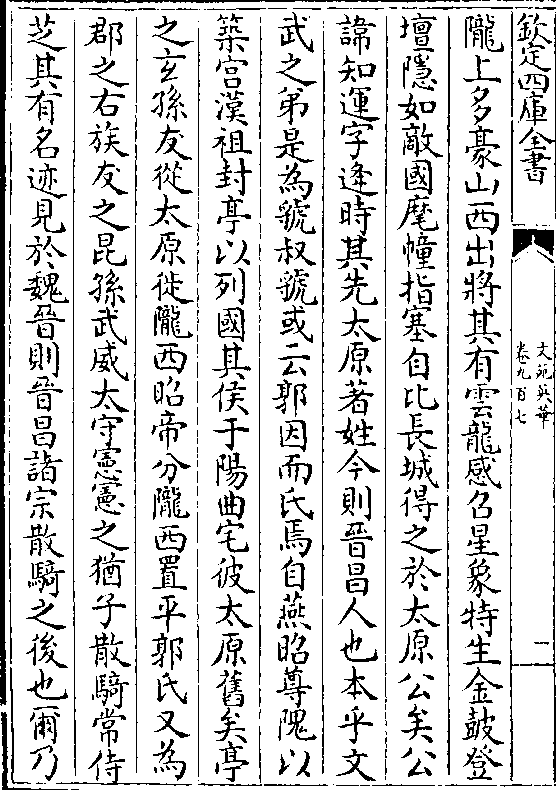 欽定四庫全書
文苑英華
卷九百七
二
隴上多豪山西出將其有雲龍感召星象特生金鼓登
壇隱如敵國麾幢指塞自比長城得之於太原公矣公
諱知運字逢時其先太原著姓今則晉昌人也本乎文
武之弟是為虢叔虢或云郭因而氏焉自燕昭尊隗以
築宫漢祖封亭以列國其侯于陽曲宅彼太原舊矣亭
之玄孫友從太原徙隴西昭帝分隴西置平郭氏又為
郡之右族友之昆孫武威太守憲憲之猶子散騎常侍
芝其有名迹見於魏晉則晉昌諸宗散騎之後也爾乃